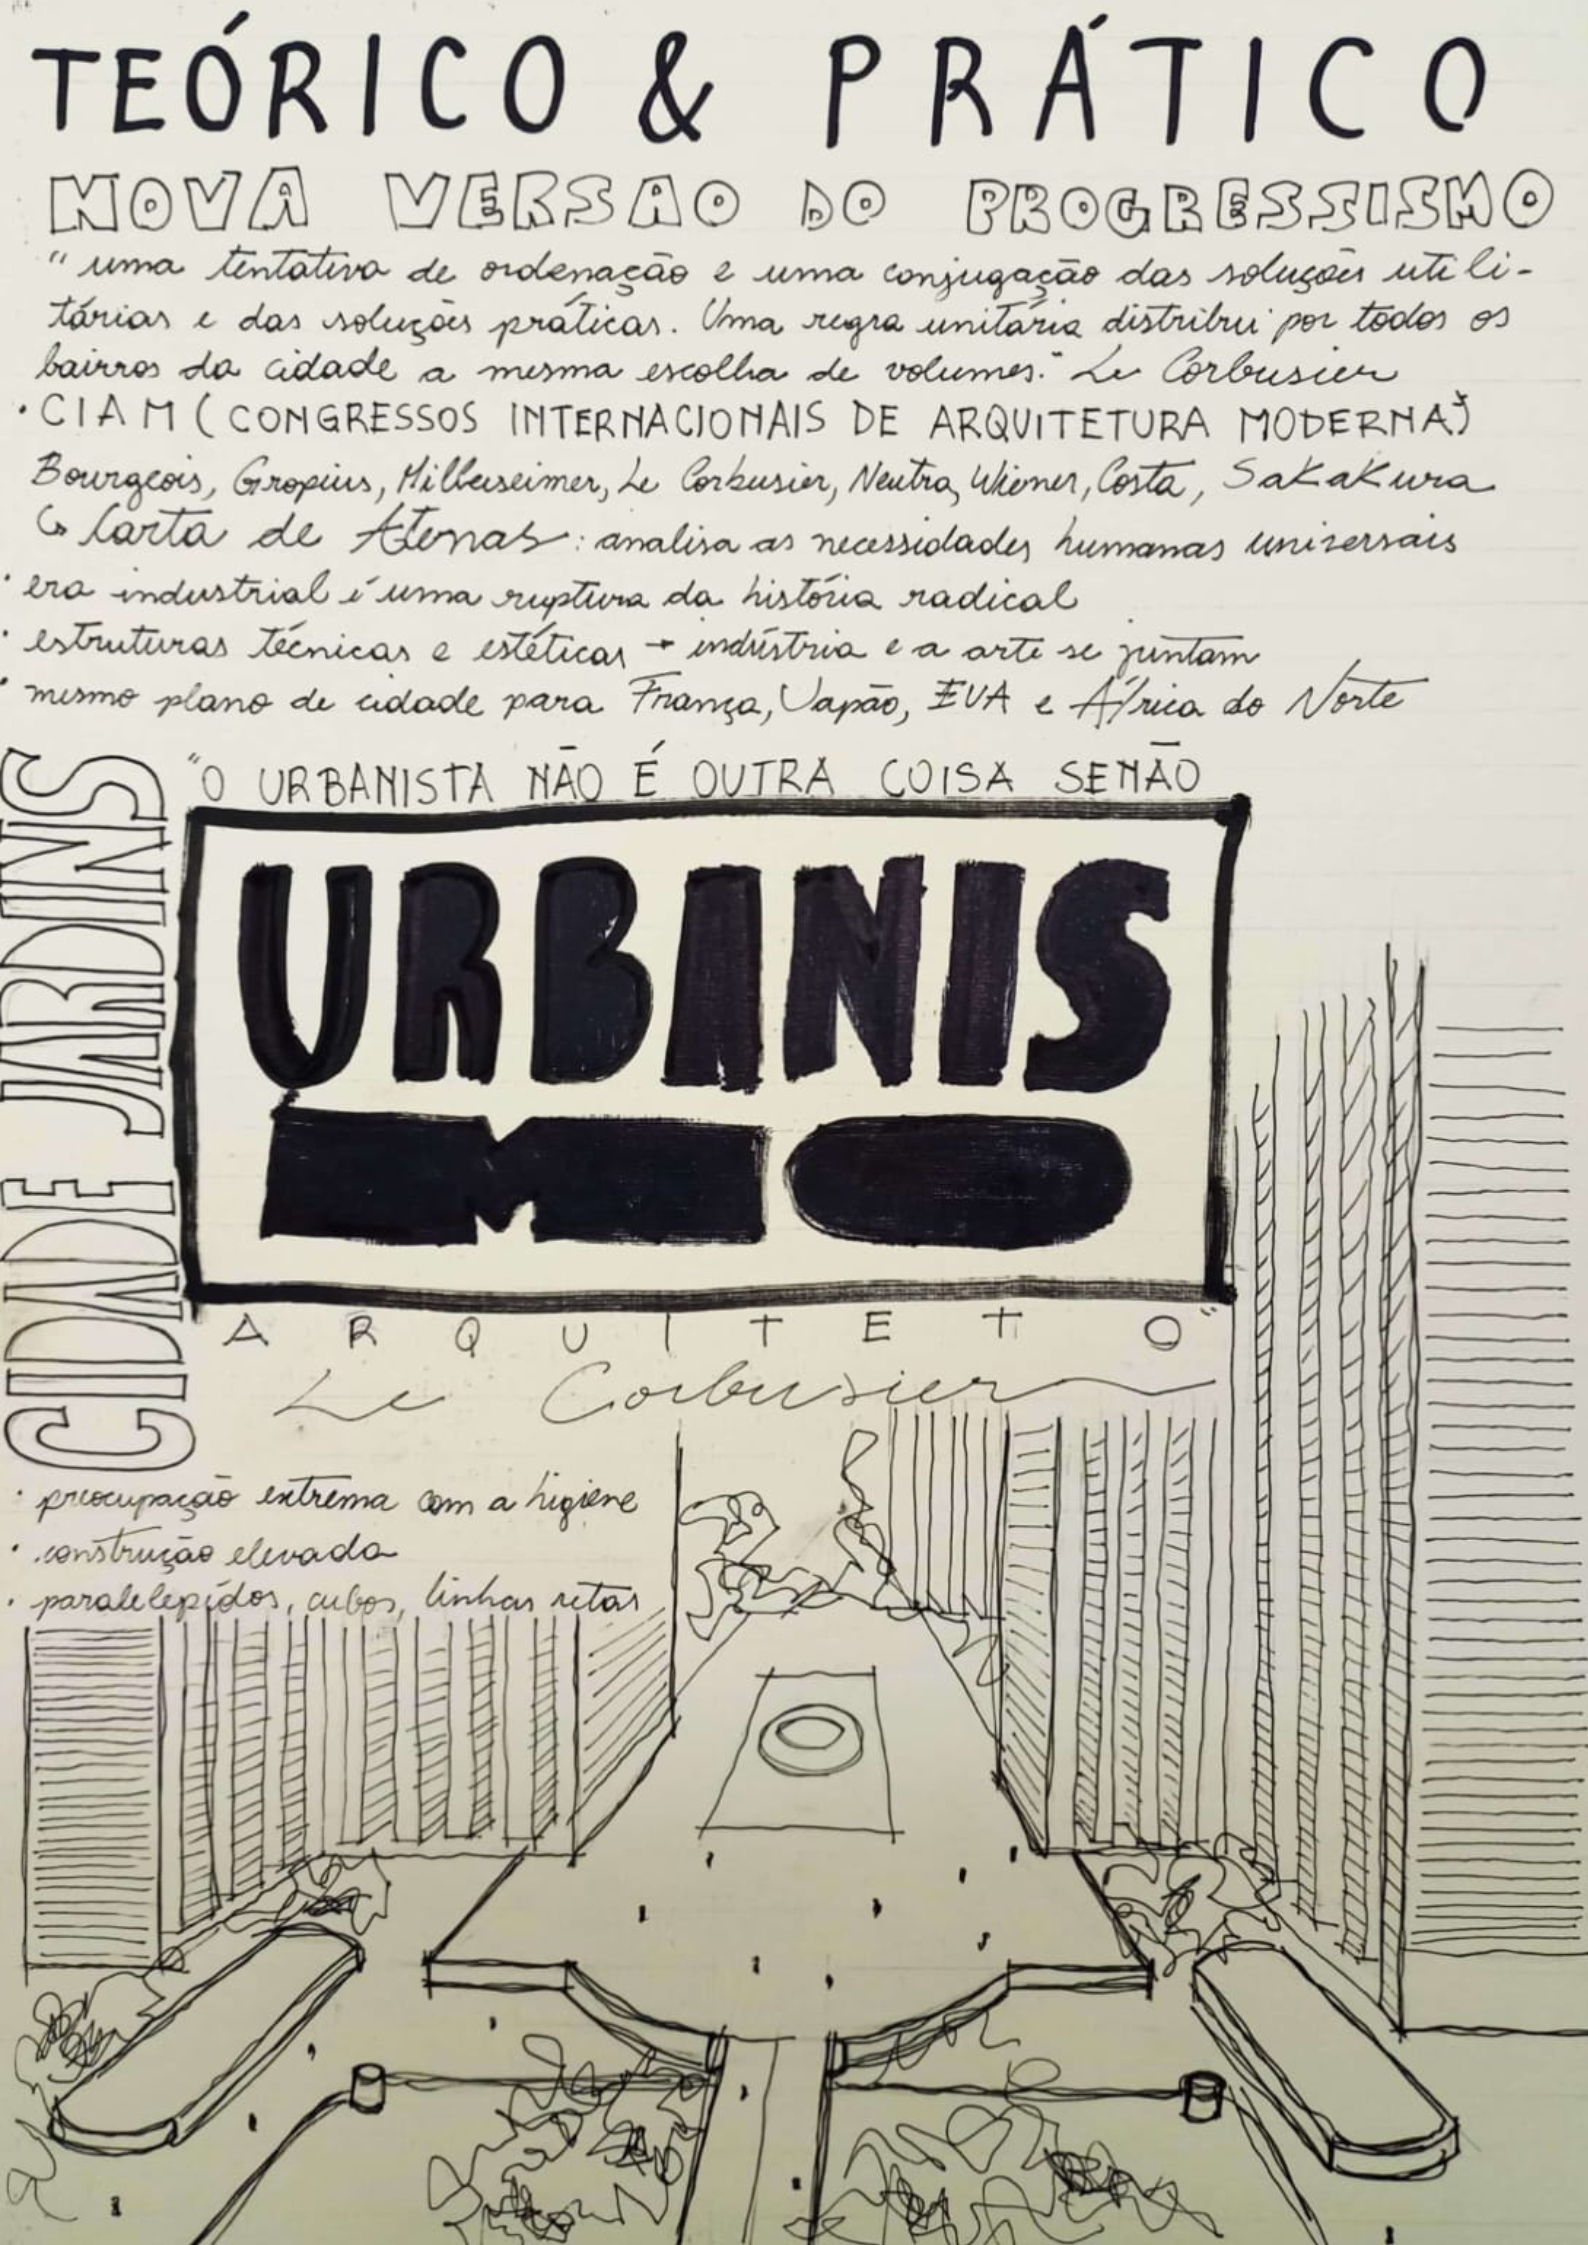 TEÓRICO & PRÁTICO
NOVA VERSAO DO PROGRESSISMO
"uma tentativa de ordenação e uma conjugação das soluções utili-
tárias e das soluções práticas. Uma regra unitária distribui por todos os
bairros da cidade a mesma escolha de volumes." Le Corbusier
• CIAM (CONGRESSOS INTERNACIONAIS DE ARQUITETURA MODERNA)
Bourgeois, Gropius, Hilberseimer, Le Corbusier, Neutra, Wiener, Costa, Sakakura
↳ Carta de Atenas: analisa as necessidades humanas universais
• era industrial é uma ruptura da história radical
• estruturas técnicas e estéticas → indústria e a arte se juntam
• mesmo plano de cidade para França, Japão, EUA e África do Norte
CIDADE JARDINS
"O URBANISTA NÃO É OUTRA COISA SENÃO
URBANIS
MO
ARQUITETO"
Le Corbusier
• preocupação extrema com a higiene
• construção elevada
• paralelepípidos, cubos, linhas retas